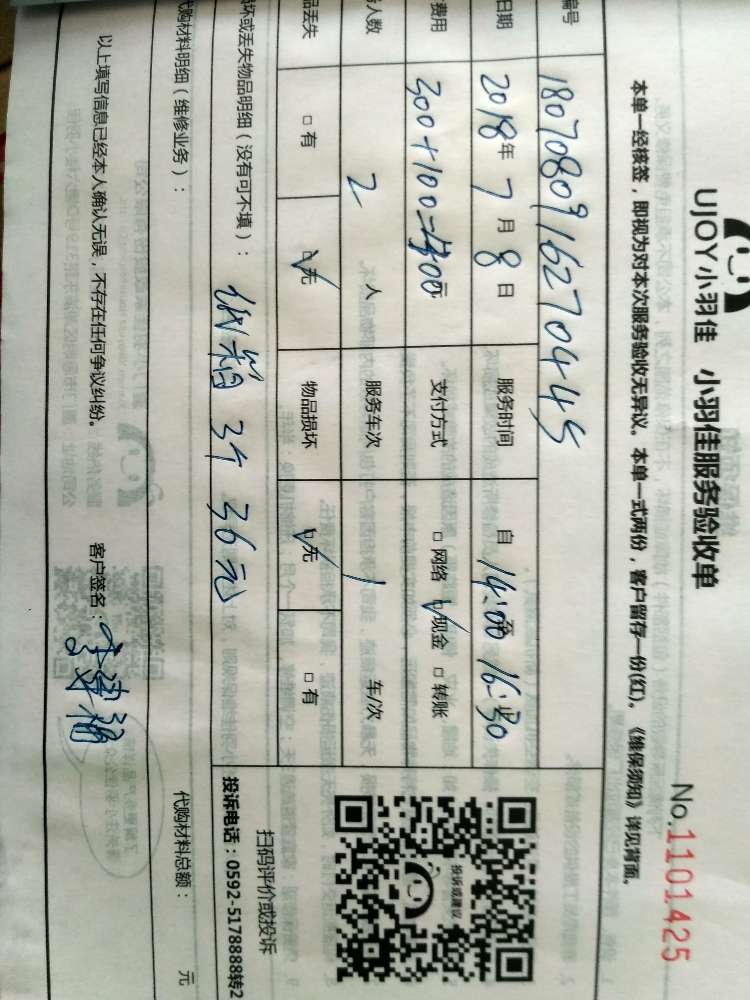 UJOY小羽佳 小羽佳服务验收单
No.1101425
本单一经核签，即视为对本次服务验收无异议。本单一式两份，客户留存一份(红)。《维保须知》详见背面。
编号 18070809162704445
日期 2018年7月8日 服务时间 自 14:00 至 16:30 止
费用 300+100=400元 支付方式 □网络 ☑现金 □转账
人数 2 人 服务车次 1 车/次
品丢失 □有 ☑无 物品损坏 ☑无 □有
坏或丢失物品明细（没有可不填）： 纸箱 3个 36元
代购材料明细（维修业务）：
代购材料总额： 元
以上填写信息已经本人确认无误，不存在任何争议纠纷。 客户签名：
投诉或建议
扫码评价或投诉
投诉电话：0592-5178888转2